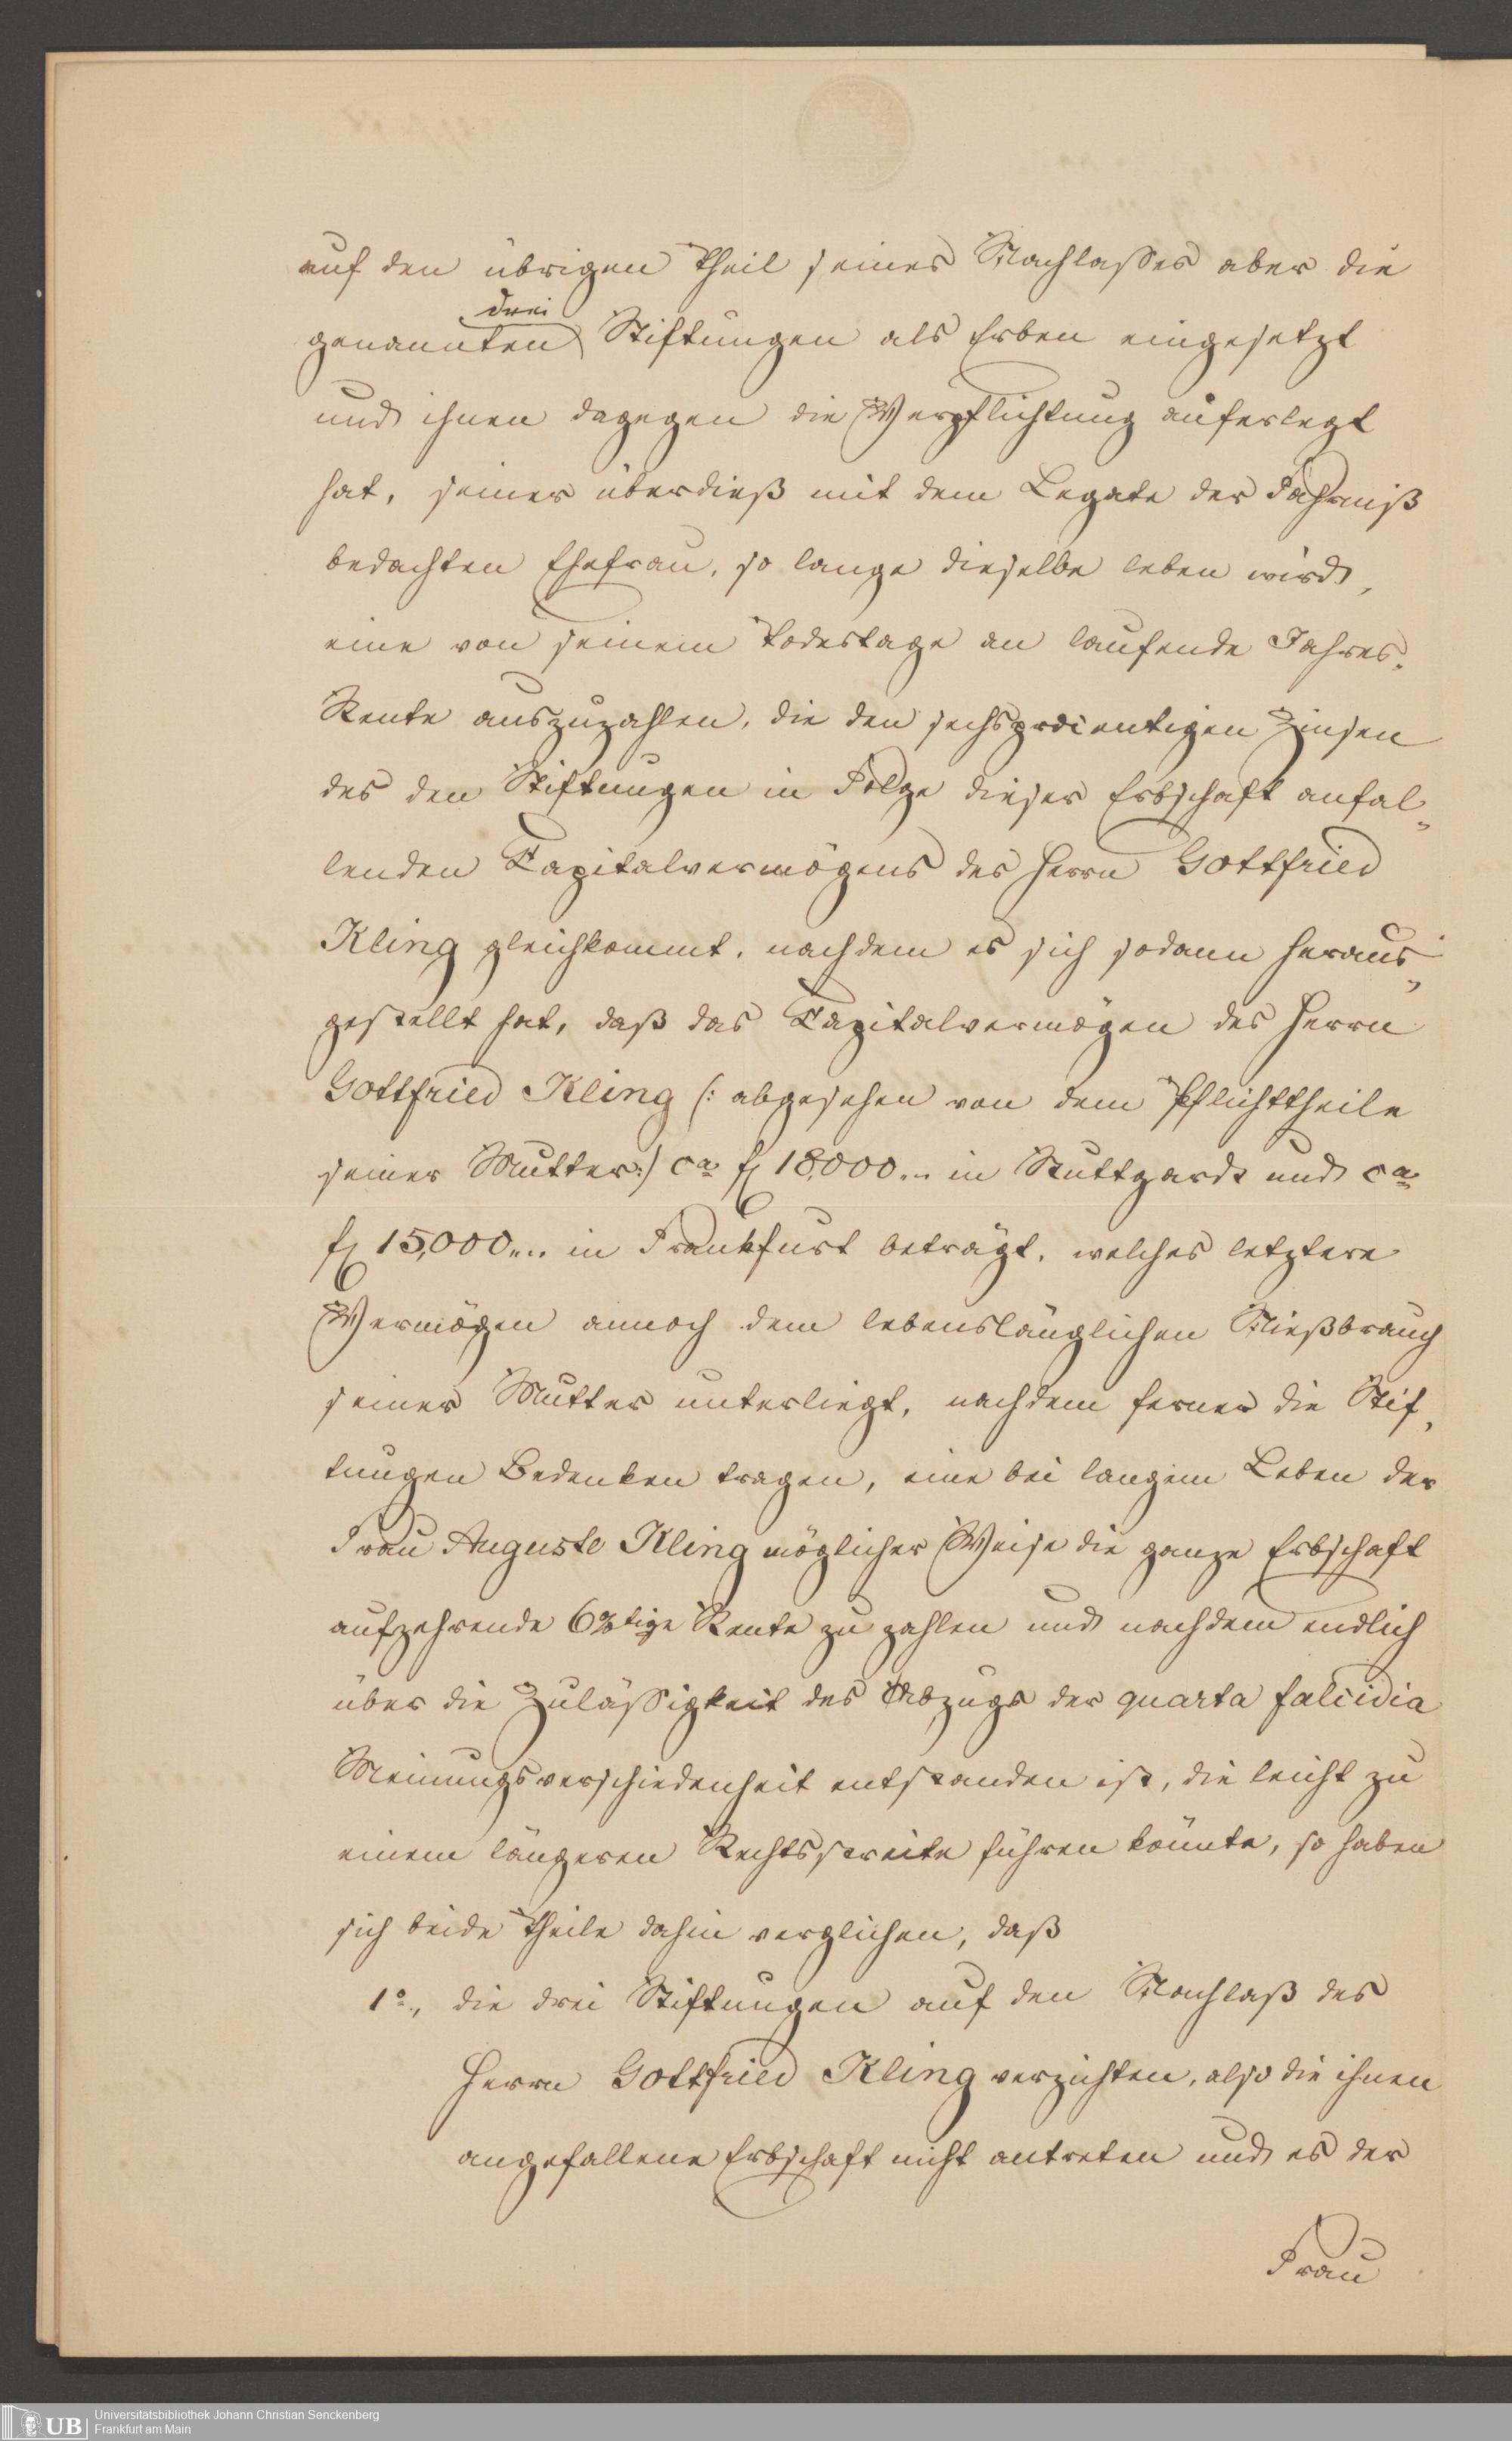 auf den übrigen Theil seines Nachlaßes aber die
drei
genannten Stiftungen als Erben eingesetzt
und ihnen dagegen die Verpflichtung auferlegt
hat, seiner überdieß mit dem Legate der Fahrniß
bedachten Ehefrau, so lange dieselbe leben wird,
eine von seinem Todestage an laufende Jahres-
Rente auszuzahlen, die den sechsprocentigen Zinsen
des den Stiftungen in Folge dieser Erbschaft anfal-
lenden Capitalvermögens des Herrn Gottfried
Kling gleichkommt, nachdem es sich sodann heraus-
gestellt hat, daß das Capitalvermögen des Herrn
Gottfried Kling (: abgesehen von dem Pflichttheile
seiner Mutter :) ca fl 18,000.. in Stuttgardt und ca
fl 15,000... in Frankfurt beträgt, welches letztere
Vermögen annoch dem lebenslänglichen Nießbrauch
seiner Mutter unterliegt, nachdem ferner die Stif-
tungen Bedenken tragen, eine bei langem Leben der
Frau Auguste Kling möglicher Weise die ganze Erbschaft
aufzehrende 6%tige Rente zu zahlen und nachdem endlich
über die Zuläßigkeit des Abzugs der quarta falcidia
Meinungsverschiedenheit entstanden ist, die leicht zu
einem längeren Rechtsstreite führen könnte, so haben
sich beide Theile dahin verglichen, daß
1o., die drei Stiftungen auf den Nachlaß des
Herrn Gottfried Kling verzichten, also die ihnen
angefallene Erbschaft nicht antreten und es der
Frau
UB
Universitätsbibliothek Johann Christian Senckenberg
Frankfurt am Main